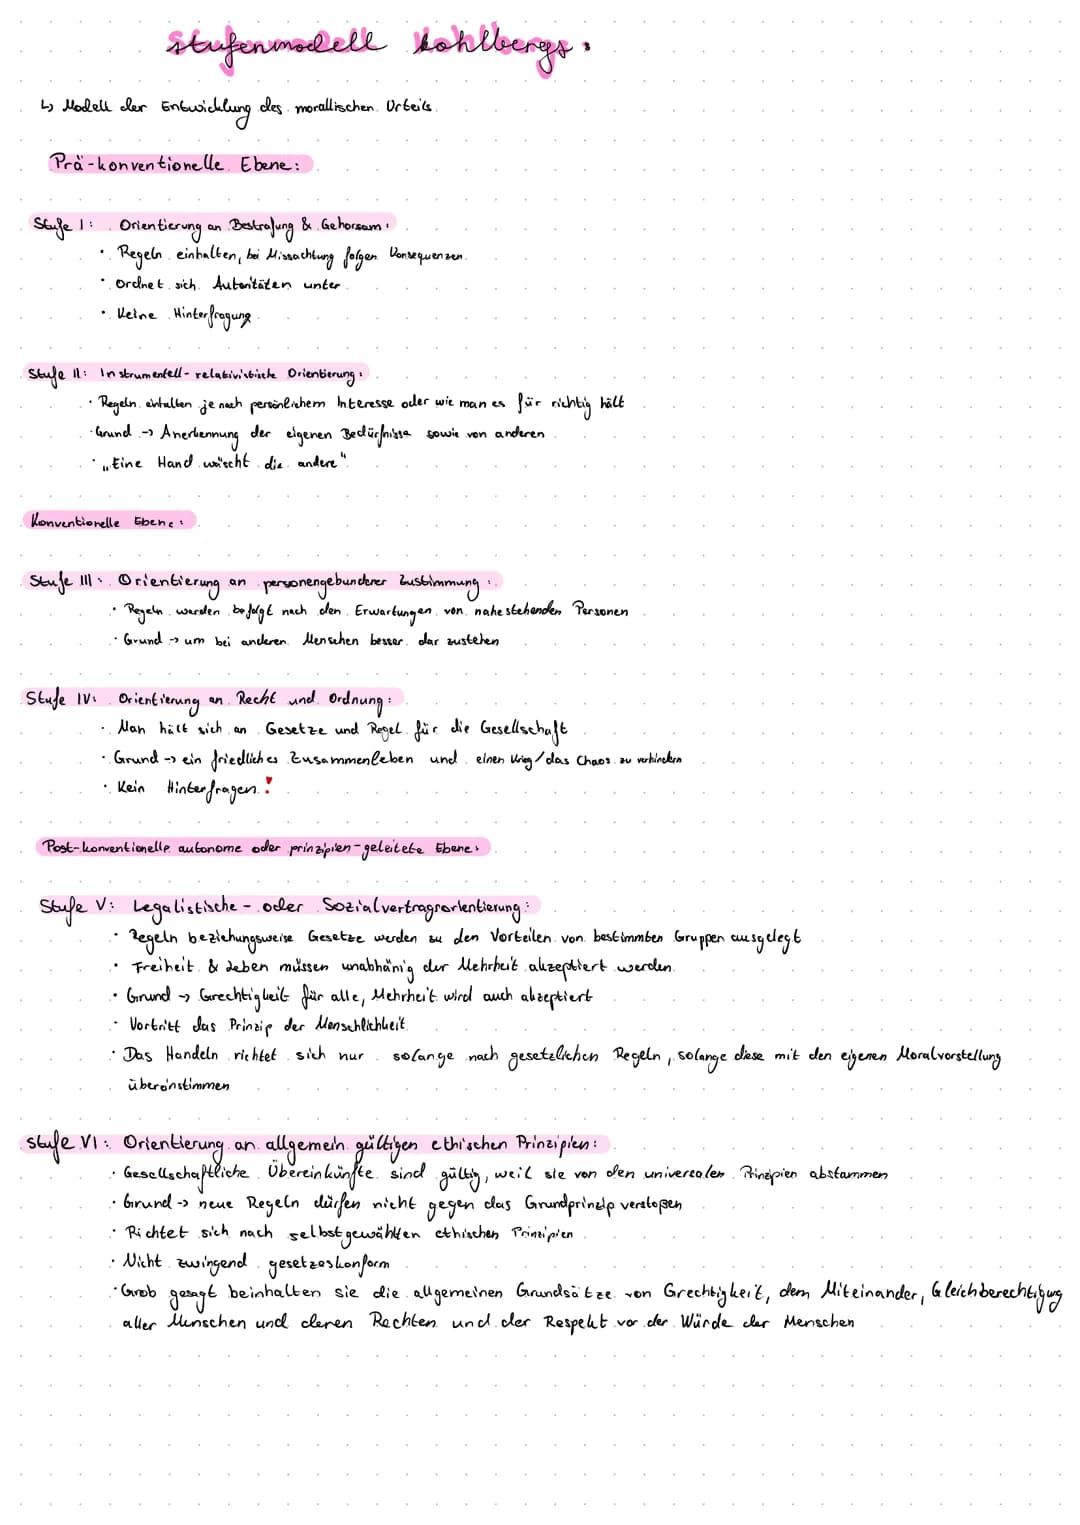 stufenmodell kohlbergs:
↳ Modell der Entwicklung des morallischen Urteils
Prä-konventionelle Ebene:
Stufe I: Orientierung an Bestrafung & Gehorsam:
• Regeln einhalten, bei Missachtung folgen Konsequenzen.
• Ordnet sich Autoritäten unter
• Keine Hinterfragung
Stufe II: Instrumentell-relativistische Orientierung:
• Regeln einhalten je nach persönlichem Interesse oder wie man es für richtig hält
• Grund -> Anerkennung der eigenen Bedürfnisse sowie von anderen
• „Eine Hand wäscht die andere"
Konventionelle Ebene:
Stufe III: Orientierung an personengebundener Zustimmung:
• Regeln werden befolgt nach den Erwartungen von nahestehenden Personen
• Grund -> um bei anderen Menschen besser dar zustehen
Stufe IV: Orientierung an Recht und Ordnung:
• Man hält sich an Gesetze und Regel für die Gesellschaft
• Grund -> ein friedliches Zusammenleben und einen Krieg/das Chaos zu verhindern
• Kein Hinterfragen!
Post-konventionelle autonome oder prinzipien-geleitete Ebene:
Stufe V: Legalistische- oder Sozialvertragsorientierung:
• Regeln beziehungsweise Gesetze werden zu den Vorteilen von bestimmten Gruppen ausgelegt
• Freiheit & Leben müssen unabhänig der Mehrheit akzeptiert werden.
• Grund -> Grechtigkeit für alle, Mehrheit wird auch akzeptiert
• Vortritt das Prinzip der Menschlichkeit
• Das Handeln richtet sich nur solange nach gesetzlichen Regeln, solange diese mit den eigenen Moralvorstellung
überinstimmen
stufe VI: Orientierung an allgemein gültigen ethischen Prinzipien:
• Gesellschaftliche Übereinkünfte sind gültig, weil sie von den universalen Prinzipien abstammen
• Grund -> neue Regeln dürfen nicht gegen das Grundprinzip verstoßen
• Richtet sich nach selbstgewählten ethischen Prinzipien
• Nicht zwingend gesetzeskonform
• Grob gesagt beinhalten sie die allgemeinen Grundsätze von Grechtigkeit, dem Miteinander, Gleichberechtigung
aller Menschen und deren Rechten und der Respekt vor der Würde der Menschen